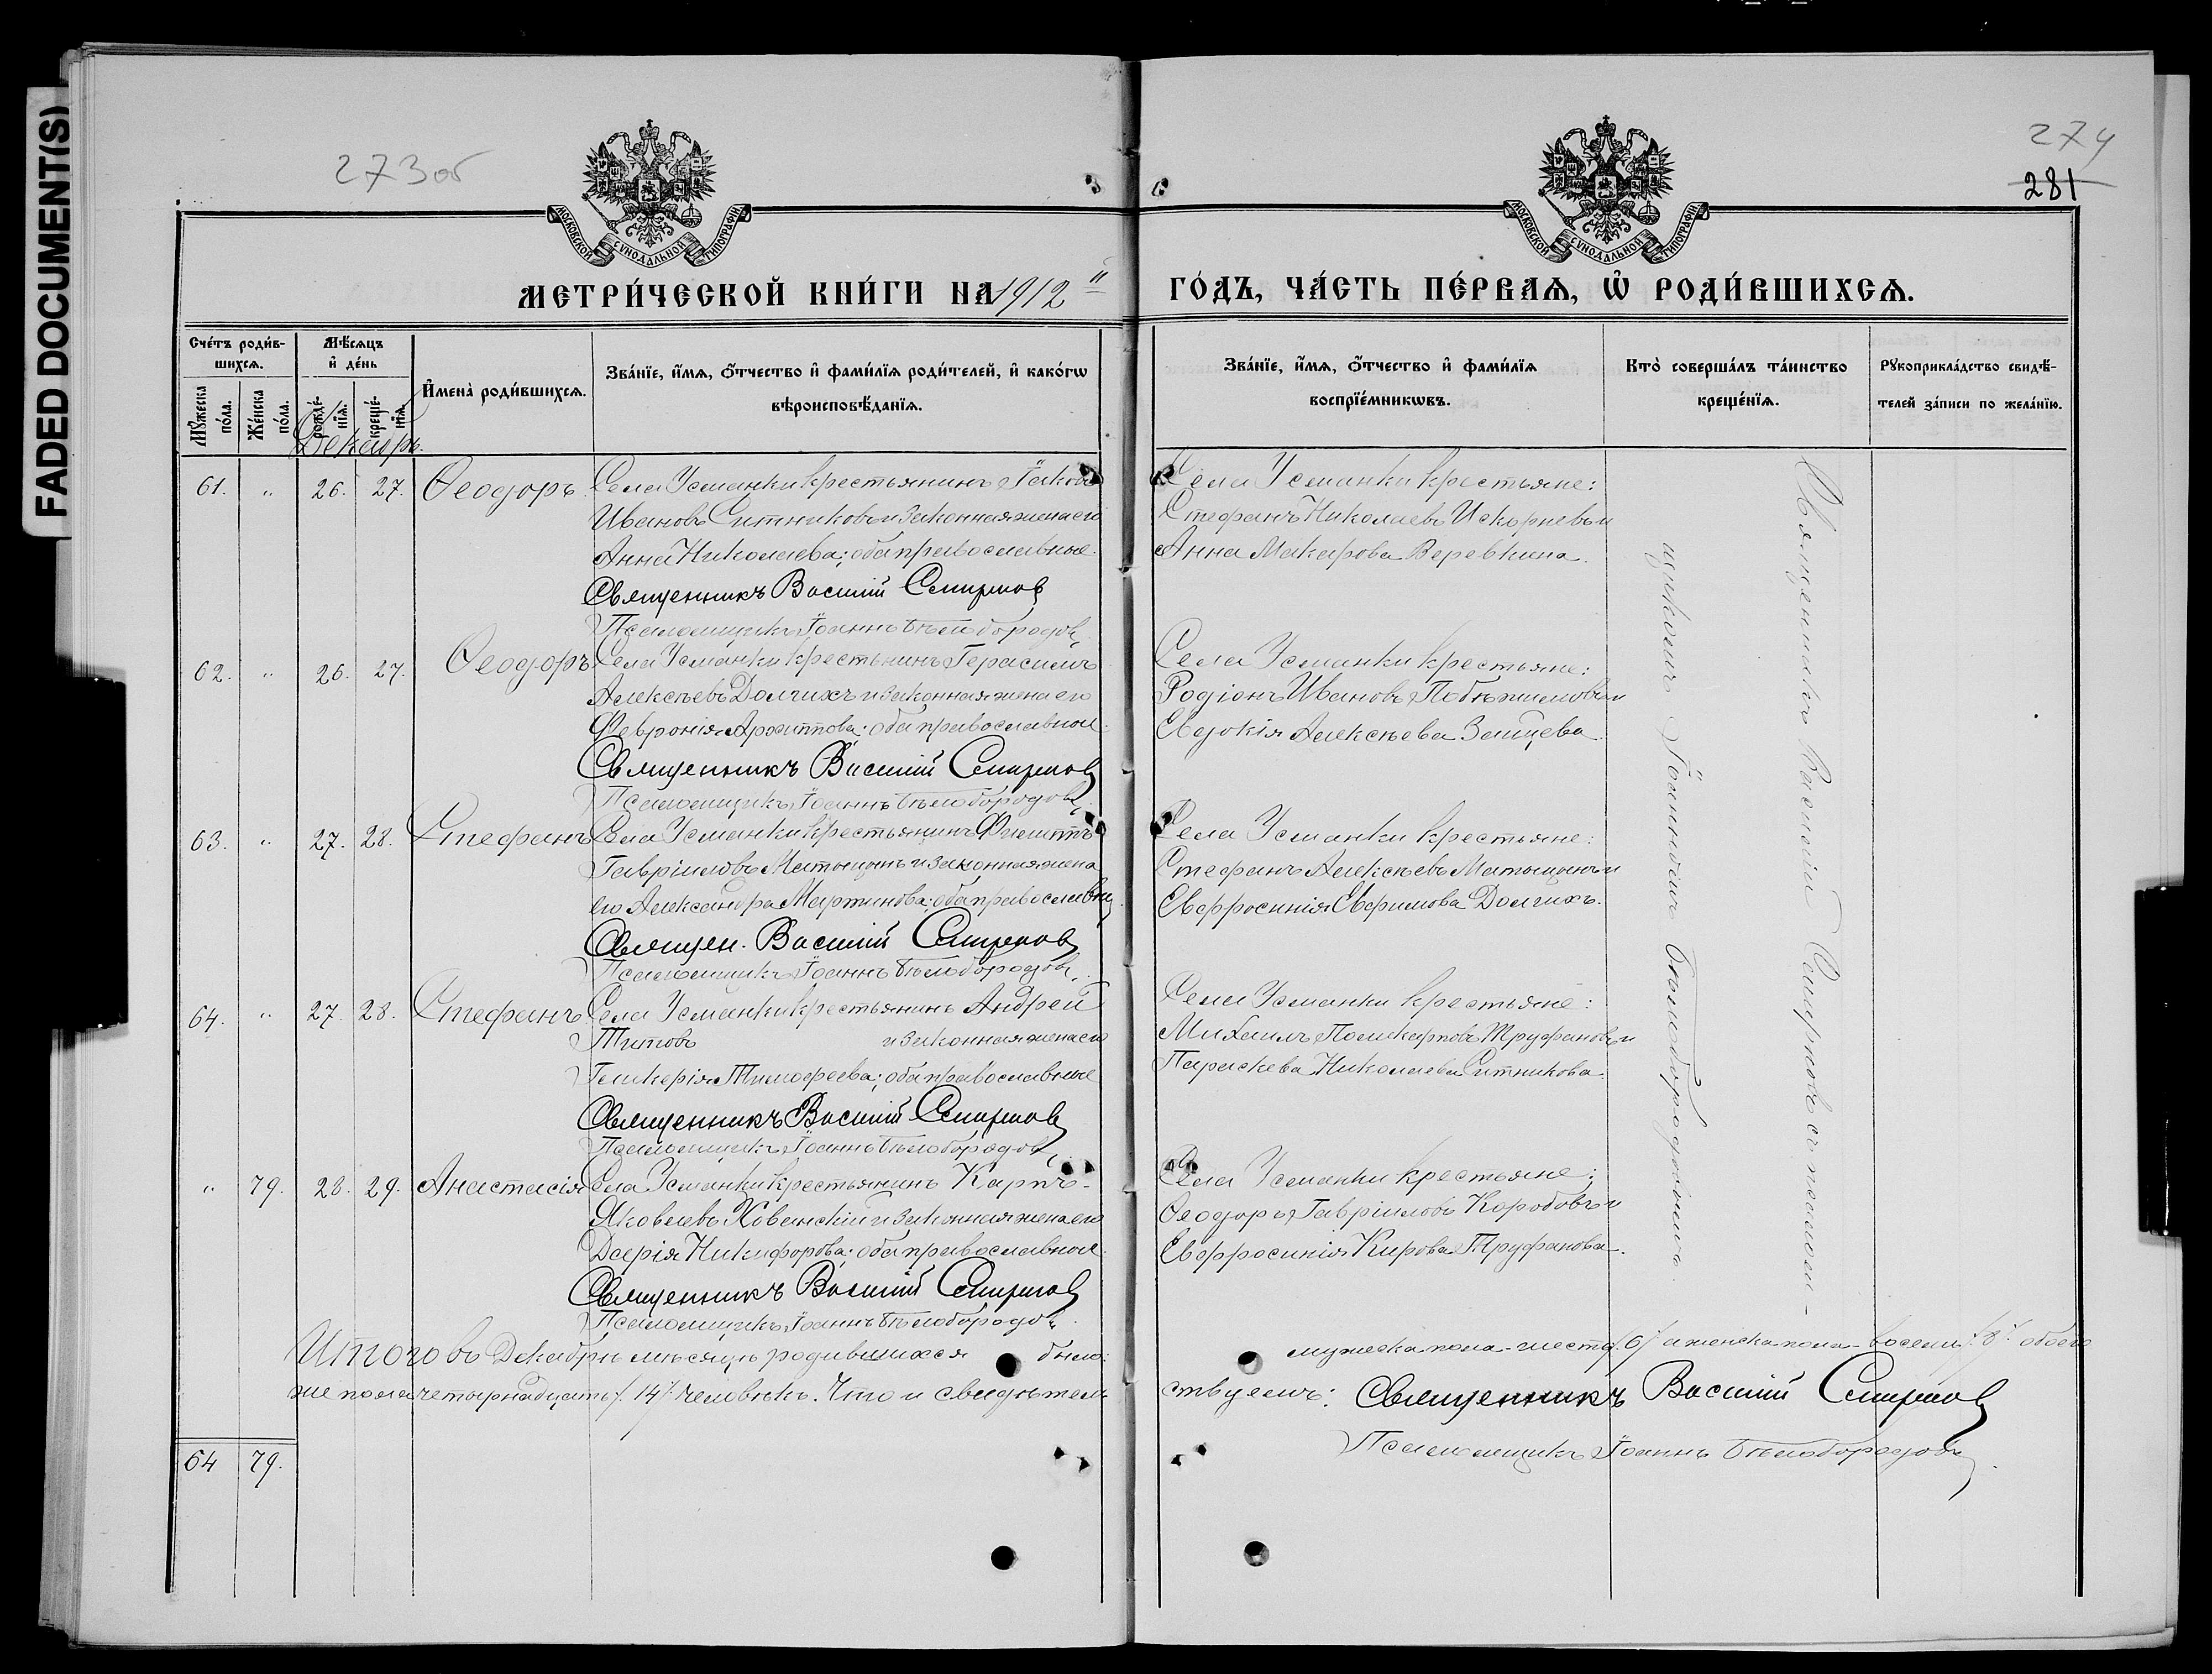 FADED DOCUMENT(S)
273 об
274
281
МОСКОВСКОЙ СѴНОДАЛЬНОЙ ТИПОГРАФІИ
МОСКОВСКОЙ СѴНОДАЛЬНОЙ ТИПОГРАФІИ
МЕТРИ́ЧЕСКОЙ КНИ́ГИ НА 1912 й
ГО́ДЪ, ЧА́СТЬ ПЕ́РВАѦ, Ѡ РОДИ́ВШИХСѦ.
Сче́тъ роди́в-
шихсѧ.
Мѣ́сѧцъ
и҆ де́нь
Мꙋ́жеска по́ла.
Же́нска по́ла.
рожде́-
нїѧ.
креще́-
нїѧ.
И҆мена̀ роди́вшихсѧ.
Зва́нїе, и҆́мѧ, ѻ҆́тчество и҆ фами́лїѧ роди́телей, и҆ како́гѡ
вѣроисповѣ́данїѧ.
Зва́нїе, и҆́мѧ, ѻ҆́тчество и҆ фами́лїѧ
воспрїе́мникѡвъ.
Кто̀ соверша́лъ та́инство
креще́нїѧ.
Рꙋкоприкла́дство свидѣ́-
телей за́писи по жела́нїю.
Декабрь.
61. " 26. 27. Ѳеодоръ. Села Усманки крестьянинъ Іаковъ
Ивановъ Ситниковъ и законная жена его
Анна Николаева; оба православные.
Священникъ Василій Смирнов
Псаломщикъ Іоаннъ Бѣлобородов
Села Усманки крестьяне:
Стефанъ Николаевъ Искорневъ и
Анна Макарова Веревкина.
62. " 26. 27. Ѳеодоръ. Села Усманки крестьнинъ Герасимъ
Алексѣевъ Долгихъ и законная жена его
Февронія Архиппова; оба православные.
Священникъ Василій Смирнов
Псаломщикъ Іоаннъ Бѣлобородов
Села Усманки крестьяне:
Родіонъ Ивановъ Побѣжимовъ и
Евдокія Алексѣева Зайцева.
63. " 27. 28. Стефанъ Села Усманки крестьянинъ Филиппъ
Гавріиловъ Матыцынъ и законная жена
его Александра Мартинова; оба православны
Священ. Василій Смирнов
Псаломщикъ Іоаннъ Бѣлобородов
Села Усманки крестьяне:
Стефанъ Алексѣевъ Матыцынъ и
Евфросинія Евфимова Долгихъ.
64. " 27. 28. Стефанъ Села Усманки крестьянинъ Андрей
Титовъ и законная жена его
Гликерія Тимофеева; оба православные
Священникъ Василій Смирнов
Псаломщикъ Іоаннъ Бѣлобородов
Села Усманки крестьяне:
Михаилъ Поликарповъ Труфановъ и
Параскева Николаева Ситникова.
" 79. 28. 29. Анастасія Села Усманки крестьянинъ Карпъ
Яковлевъ Хованскій и законная жена его
Дарія Никифорова; оба православные.
Священникъ Василій Смирнов
Псаломщикъ Іоаннъ Бѣлобородов.
Села Усманки крестьяне:
Ѳеодоръ Гавріиловъ Коробовъ и
Евфросинія Кирова Труфанова.
Священникъ Василій Смирновъ съ псалом-
щикомъ Іоанномъ Бѣлобородовымъ
Итого въ Декабрѣ мѣсяцѣ родившихся было: мужеска пола - шесть /6/ а женска пола - восемь /8/ обоего
же пола четырнадцать /14/ человѣкъ. Что и свидѣтель ствуемъ: Священникъ Василій Смирнов
Псаломщикъ Іоаннъ Бѣлобородовъ
64 79.